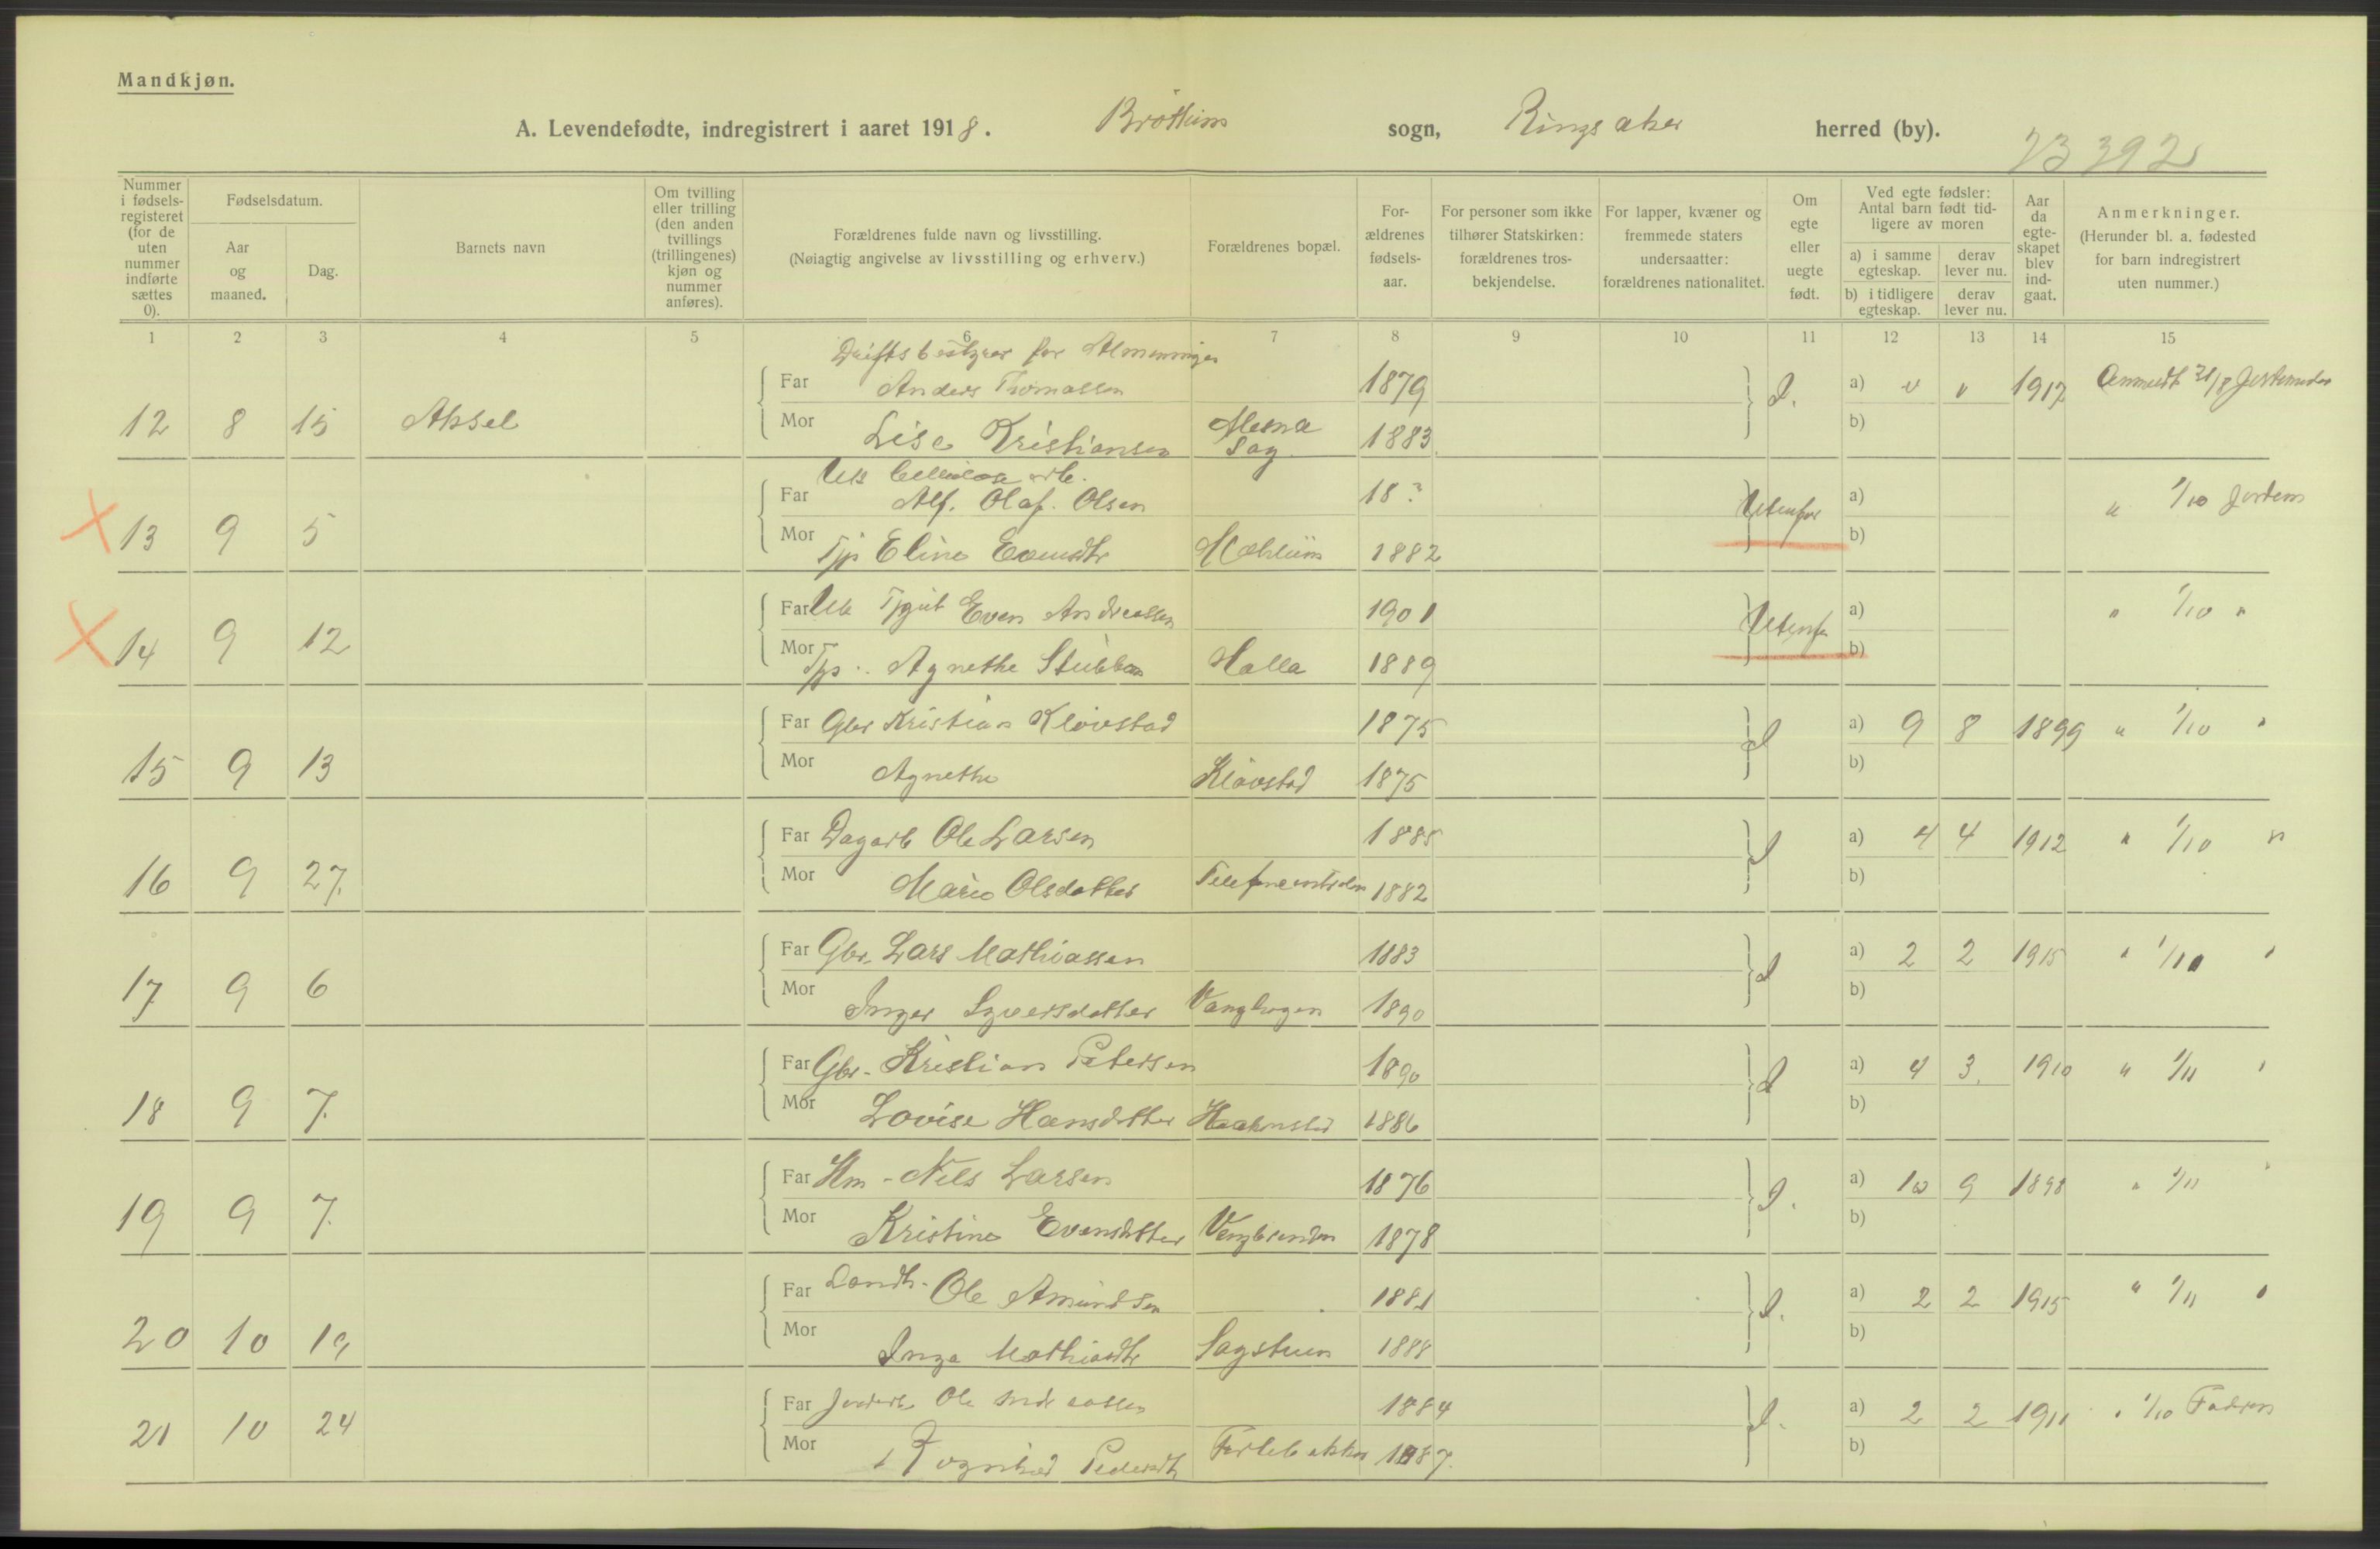 Mandkjøn.
A. Levendefødte, indregistrert i aaret 1918. Brøttum sogn, Ringsaker herred (by).
23392
Nummer i fødsels-registeret (for de uten nummer indførte sættes 0).
Fødselsdatum.
Aar og maaned.
Dag.
Barnets navn
Om tvilling eller trilling (den anden tvillings (trillingenes) kjøn og nummer anføres).
Forældrenes fulde navn og livsstilling.
(Nøiagtig angivelse av livsstilling og erhverv.)
Forældrenes bopæl.
For-ældrenes fødsels-aar.
For personer som ikke tilhører Statskirken: forældrenes tros-bekjendelse.
For lapper, kvæner og fremmede staters undersaatter: forældrenes nationalitet.
Om egte eller uegte født.
Ved egte fødsler: Antal barn født tid-ligere av moren
a) i samme egteskap. derav lever nu.
b) i tidligere egteskap. derav lever nu.
Aar da egte-skapet blev ind-gaat.
Anmerkninger.
(Herunder bl. a. fødested for barn indregistrert uten nummer.)
1 2 3 4 5 6 7 8 9 10 11 12 13 14 15
Driftsbestyrer for Almenningen
Far Anders Thomassen 1879 a) " " 1917 Anmeldt 31/8
12 8 15 Aksel Mor Lise Kristiansen Mesna Sag 1883 b)
Cellulose arb.
Far Alf. Olaf. Olsen 18? Utenfor a) " 1/10
13 9 5 Mor Tjp Eline 1882 b)
Far Even Andreassen 1901 Utenf a) " 1/10 "
14 9 12 Mor Tjp. Agnethe Halla 1889 b)
Far Gbr Kristian Kløvstad 1875 a) 9 8 1899 " 1/10 "
15 9 13 Mor Agnethe Kløvstad 1875 b)
Far Dagarb Ole Larsen 1885 a) 4 4 1912 " 1/10 "
16 9 27. Mor Marie Olsdatter 1882 b)
Far Gbr. Lars Mathiassen 1883 a) 2 2 1915 "
17 9 6 Mor Inger Syversdatter Vanghagen 1890 b)
Far Gbr. Kristian Petersen 1890 a) 4 3. 1910 " 1/11 "
18 9 7. Mor Lovise Hansdatter 1886 b)
Far Hm - Nils Larsen 1876 a) 10 9 1898 " 1/11 "
19 9 7. Mor Kristine Evensdatter 1878 b)
Far Landh. Ole Amundsen 1881 a) 2 2 1915 " 1/11 "
20 10 19 Mor Inga Mathiasdtr Sagstuen 1888 b)
Far Ole Andreassen 1884 a) 2 2 1911 " 1/10 Fadren
21 10 24 Mor Ragnhild Pedersdtr 1887. b)